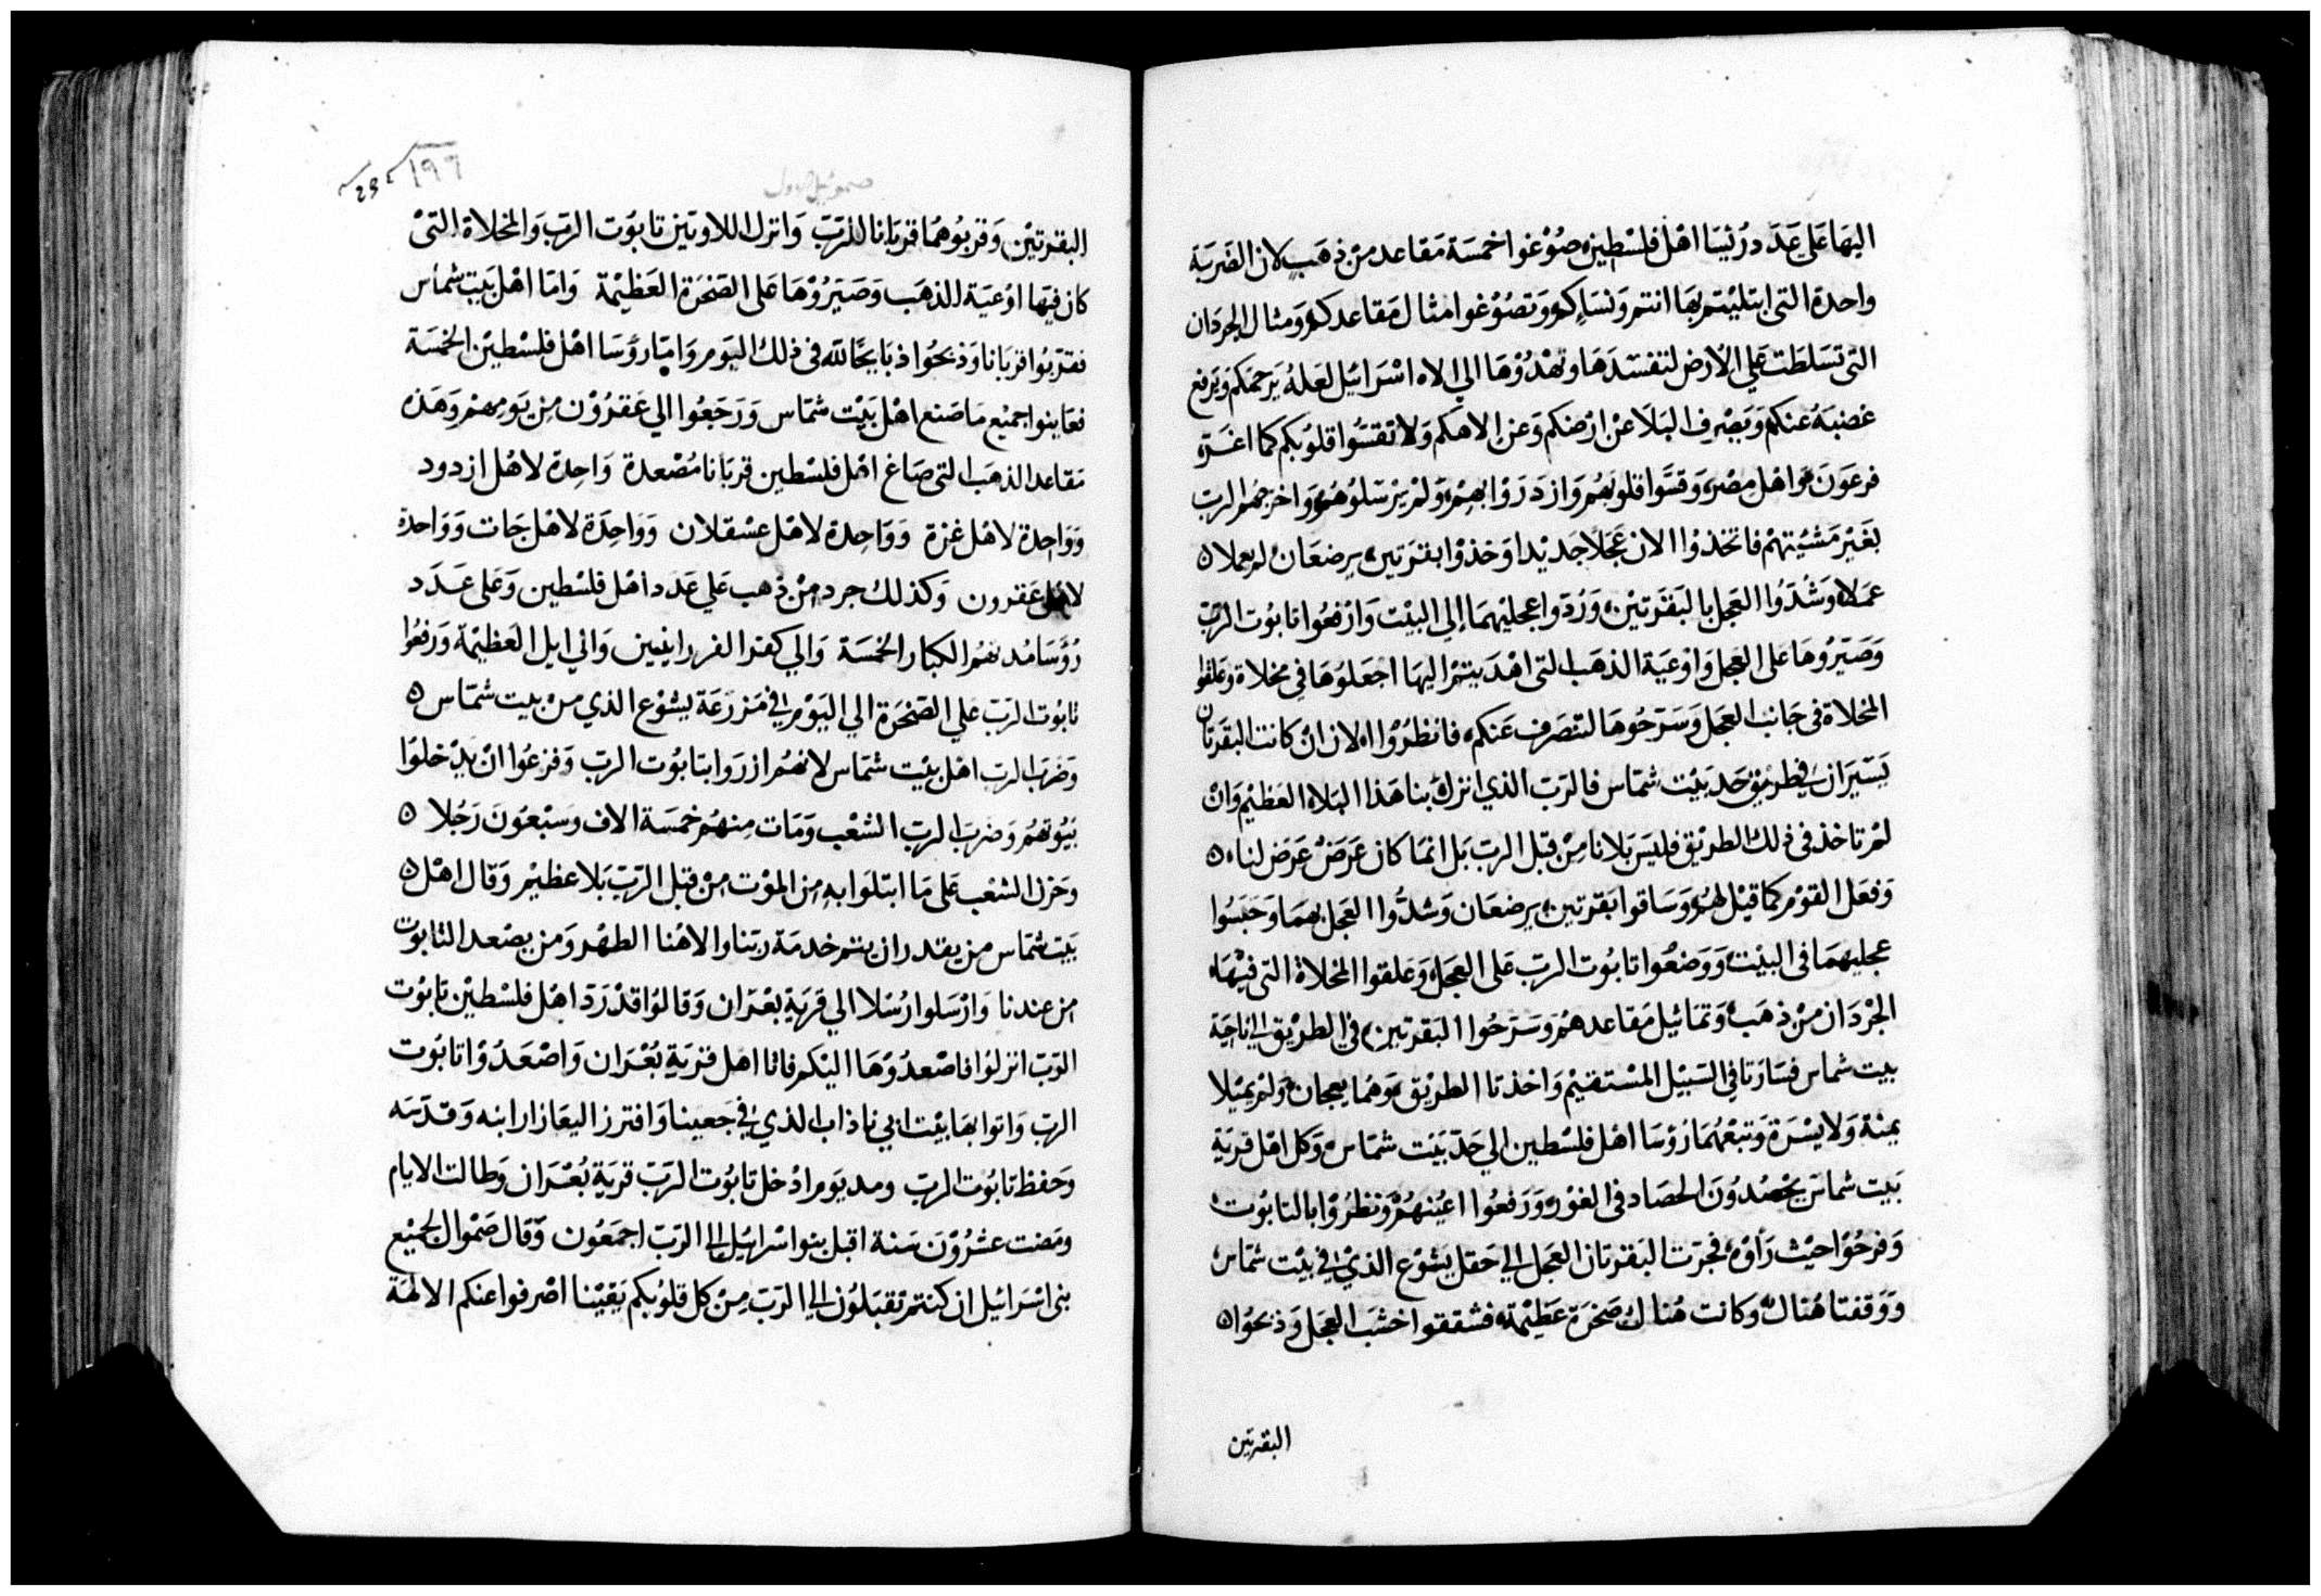 اليها على عدد رئيسا اهل فلسطين صوغوا خمسة مقاعد من ذهب لان الضربة
واحدة التي ابتليتم بها انتم ونساكم وتصوغوا امثال مقاعدكم ومثال الجردان
التي تسلطت علي الارض لتفسدها وتهدوها الي الاه اسرائيل لعله يرحمكم ويرفع
غضبه عنكم ويصرف البلا عن ارضكم وعن الاهكم ولا تقسوا قلوبكم كما اغتره
فرعون واهل مصر وقسوا قلوبهم وازدروا بهم ولم يرسلوهم واخرجهم الرب
بغير مشيتهم فاتخذوا الان عجلا جديدا وخذوا بقرتين يرضعان لم يعملا ه
عملا وشدوا العجل بالبقرتين وردوا عجليهما إلي البيت وارفعوا تابوت الرب
وصيروها على العجل واوعية الذهب التي اهديتم اليها اجعلوها في مخلاة وعلقوا
المخلاة في جانب العجل وسرحوها لتنصرف عنكم فانظروا الان ان كانت البقرتان
يسيران في طريق حد بيت شماس فالرب الذي انزل بنا هذا البلاء العظيم وان
لم تاخذ في ذلك الطريق فليس بلانا من قبل الرب بل انما كان عرض عرض لنا ه
وفعل القوم كما قيل لهم وساقوا بقرتين يرضعان وشدوا العجل بهما وحبسوا
عجليهما في البيت ووضعوا تابوت الرب على العجل وعلقوا المخلاة التي فيها
الجردان من ذهب وتماثيل مقاعدهم وسرحوا البقرتين في الطريق الي ناحية
بيت شماس فسارتا في السبيل المستقيم واخذتا الطريق وهما يعجان ولم يميلا
يمنة ولا يسرة وتبعهما رؤسا اهل فلسطين الي حد بيت شماس وكل اهل قرية
بيت شماس يحصدون الحصاد في الغور ورفعوا اعينهم ونظروا بالتابوت
وفرحوا حيث رأوه فجرت البقرتان العجل الي حقل يشوع الذي في بيت شماس
ووقفتا هناك وكانت هناك صخرة عظيمة فشققوا خشب العجل وذبحوا ه
البقرتين
صموئيل الاول
١٩٦
البقرتين وقربوهما قربانا للرب وانزل اللاويين تابوت الرب والمخلاة التي
كان فيها اوعية الذهب وصيروها على الصخرة العظيمة واما اهل بيت شماس
فقربوا قربانا وذبحوا ذبايحا لله في ذلك اليوم واما رؤسا اهل فلسطين الخمسة
فعاينوا جميع ما صنع اهل بيت شماس ورجعوا الي عقرون من يومهم وهذه
مقاعد الذهب التي صاغ اهل فلسطين قربانا مصعدة واحدة لاهل ازدود
وواحدة لاهل غزة وواحدة لاهل عسقلان وواحدة لاهل جات وواحدة
لاهل عقرون وكذلك جرد من ذهب علي عدد اهل فلسطين وعلى عدد
رؤسا مدنهم الكبار الخمسة والي كفر الفررانيين والي ايل العظيمة ورفعوا
تابوت الرب علي الصخرة الي اليوم في مزرعة يشوع الذي من بيت شماس ه
وضرب الرب اهل بيت شماس لانهم ازروا بتابوت الرب وفزعوا ان يدخلوا
بيوتهم وضرب الرب الشعب ومات منهم خمسة الاف وسبعون رجلا ه
وحزن الشعب على ما ابتلوا به من الموت من قبل الرب بلا عظيم وقال اهل ه
بيت شماس من يقدر ان يتم خدمة ربنا والاهنا الطهر ومن يصعد التابوت
من عندنا وارسلوا رسلا الي قرية بعران وقالوا قد رد اهل فلسطين تابوت
الرب انزلوا فاصعدوها اليكم فاتا اهل قرية بعران واصعدوا تابوت
الرب واتوا بها بيت ابي ناذاب الذي في جعينا وافترز اليعازار ابنه وقدسه
وحفظ تابوت الرب ومد يوم ادخل تابوت الرب قرية بعران وطالت الايام
ومضت عشرون سنة اقبل بنوا اسرائيل الي الرب اجمعون وقال صموال لجميع
بني اسرائيل ان كنتم تقبلون الي الرب من كل قلوبكم يقينا اصرفوا عنكم الالهة